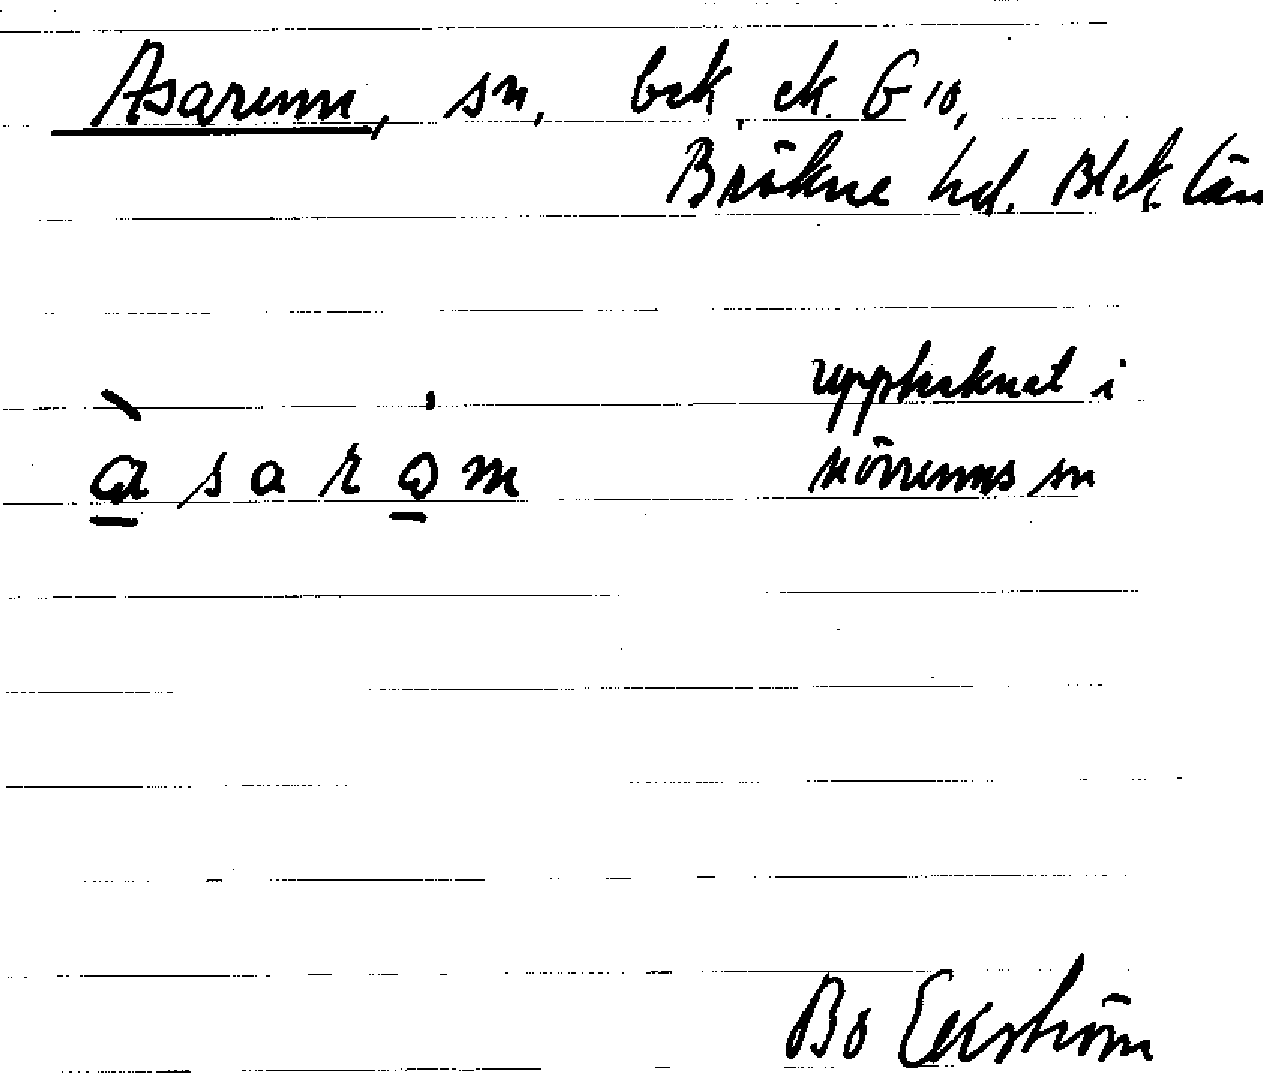 Asarum, sn, bek. ek. G 10,
Bräkne hd. Blek. län
upptecknat i
asarom Mörrums sn
Bo Eckström